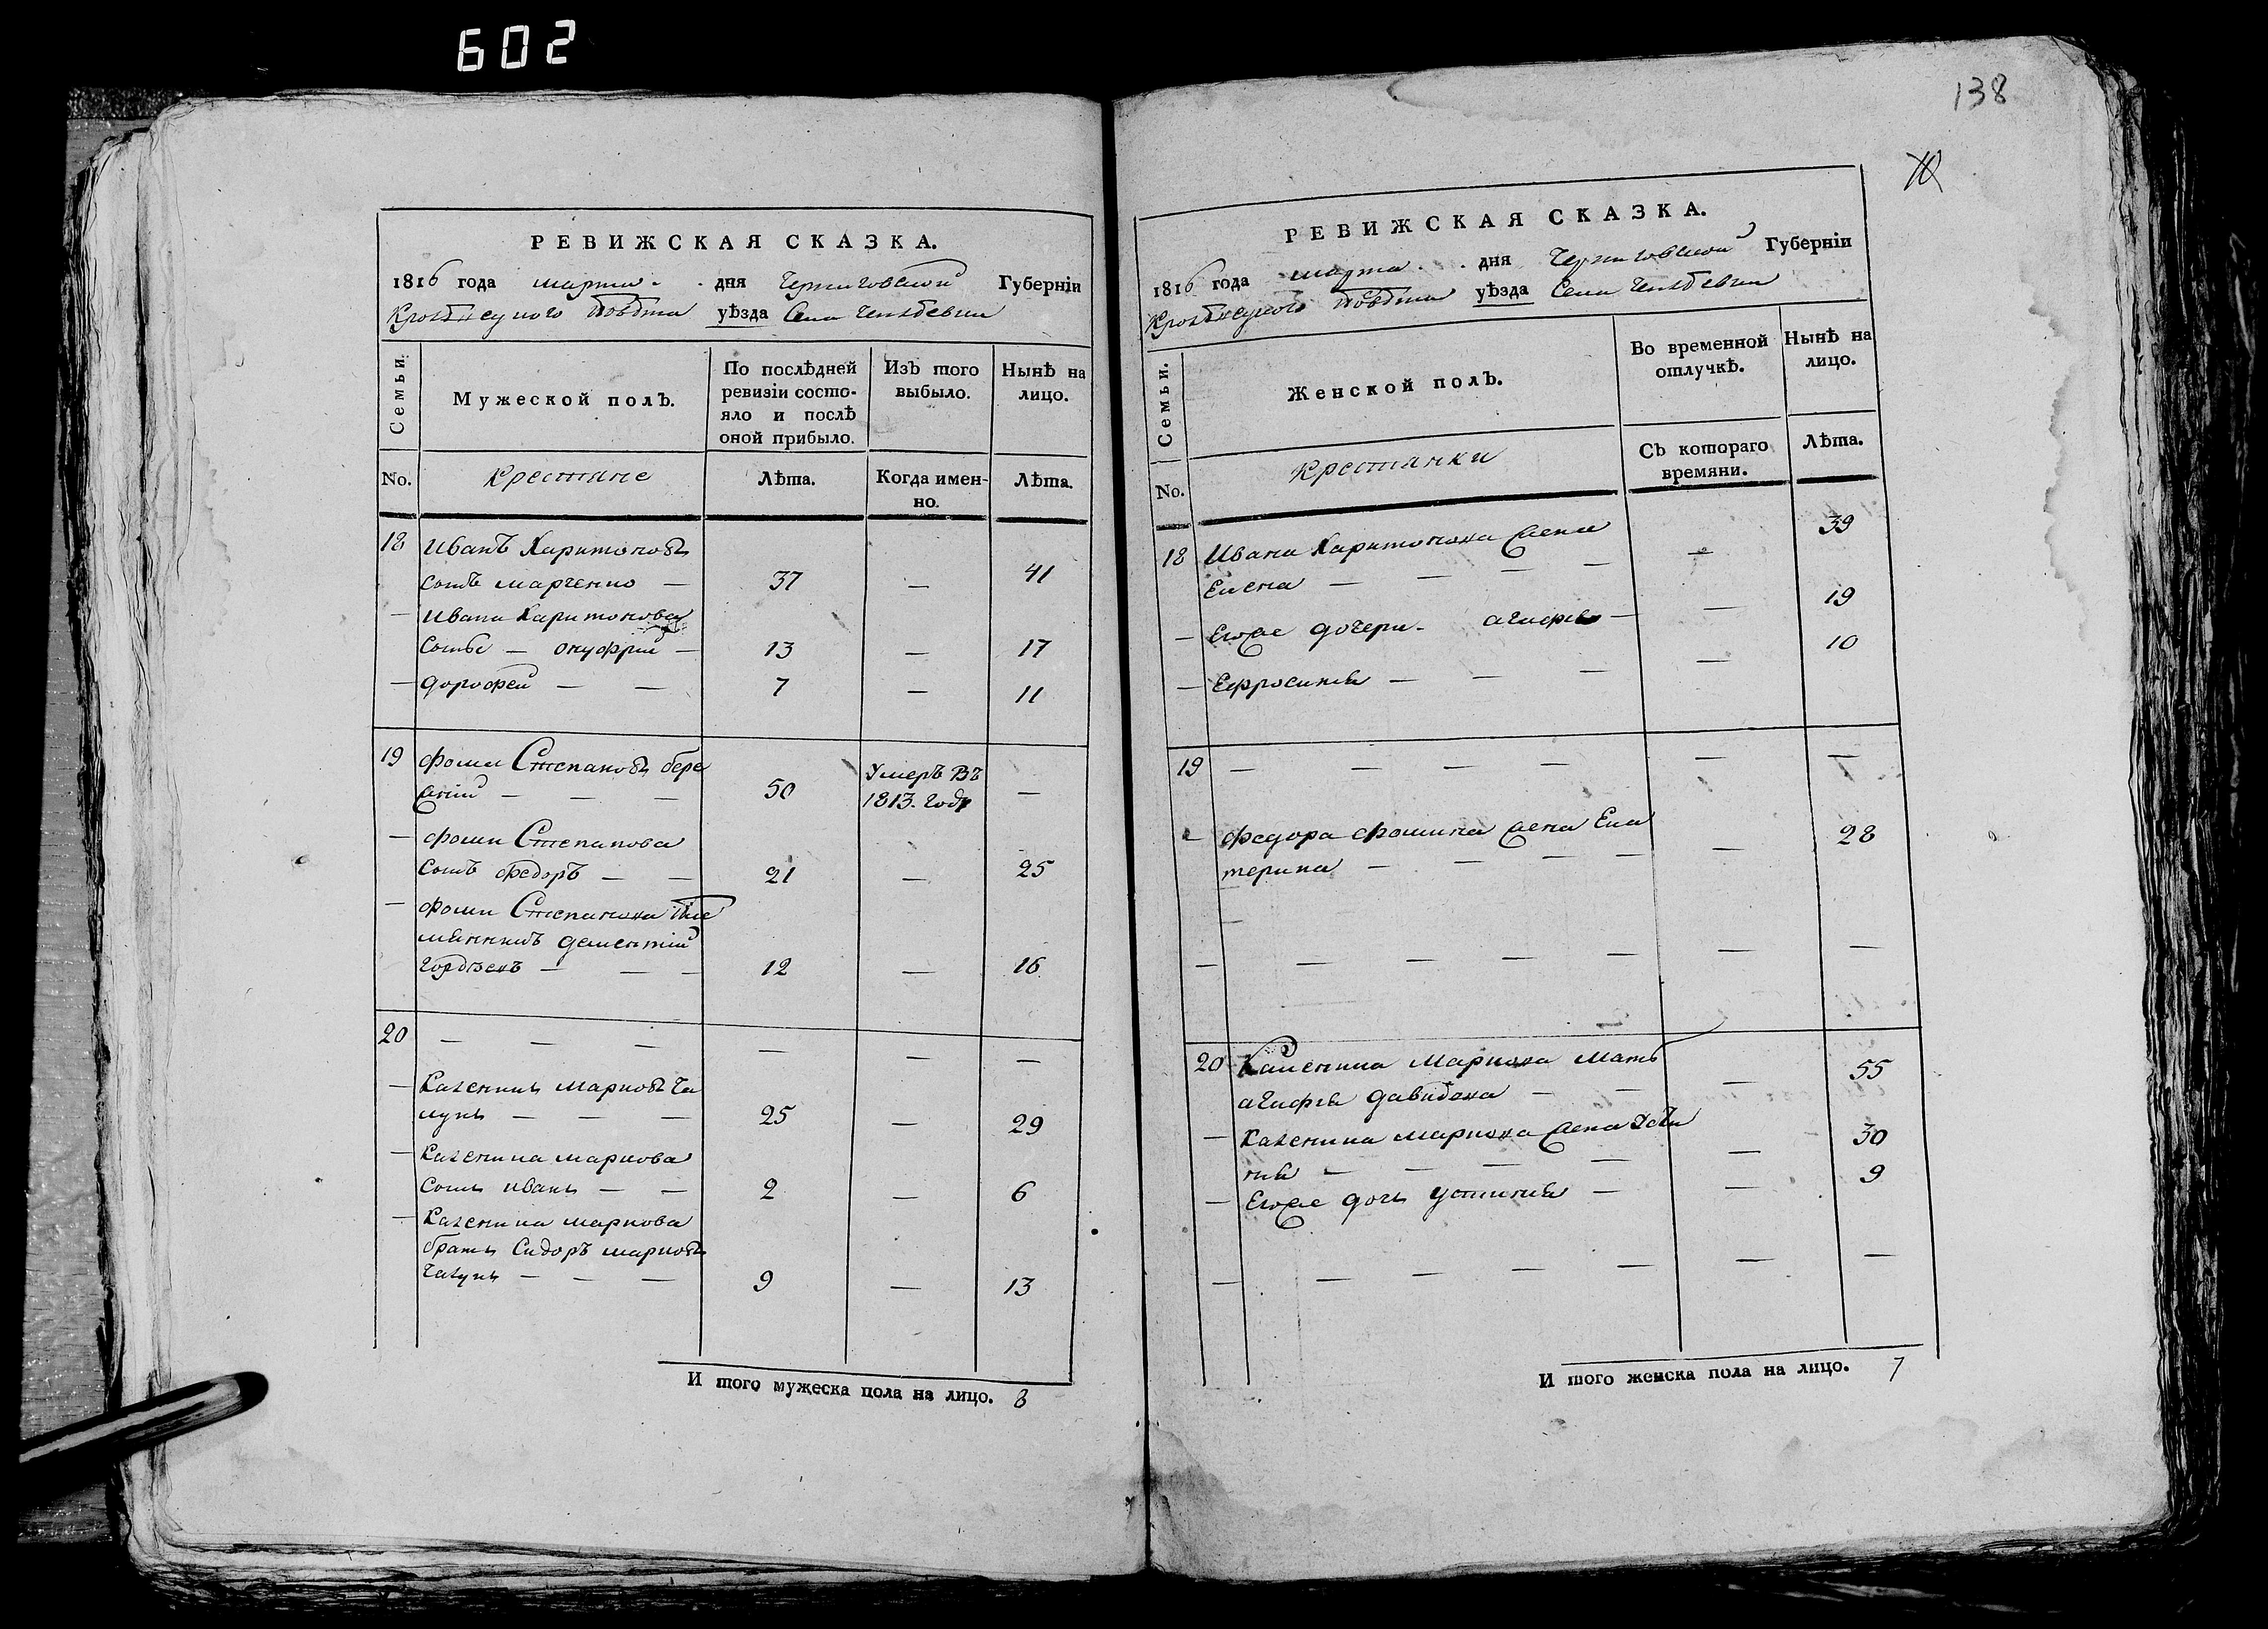 602
138
РЕВИЖСКАЯ СКАЗКА.
1816 года марта дня Черниговской Губерніи
Кролевецкого Повѣта уѣзда Села
Семьи.
Мужеской полЪ.
По послѣдней ревизіи состояло и послѣ оной прибыло.
ИзЪ того выбыло.
Нынѣ на лицо.
No.
Крестяне
Лѣта.
Когда именно.
Лѣта.
18 ИванЪ Харитоновъ
сынЪ марченко — 37 — 41
— Ивана Харитонова
сынЪ — онуфрий — 13 — 17
— дорофей — — 7 — 11
19 фома Степановъ
— — — 50 УмерЪ ВЪ 1813. году —
— фоми Степанова
сынЪ федорЪ — — 21 — 25
— фоми Степанова пле
мянникЪ дементій
гордѣевЪ — — — 12 — 16
20 — — — — — —
— Каленикъ марковъ Га
— — — 25 — 29
— Каленика маркова
сынъ иванъ — — 2 — 6
— Каленика маркова
братъ СидорЪ марковъ
— — — 9 — 13
И того мужеска пола на лицо. 8
РЕВИЖСКАЯ СКАЗКА.
1816 года марта дня Черниговской Губерніи
Кролевецкого Повѣта уѣзда Села
Семьи.
Женской полЪ.
Во временной отлучкѣ.
Нынѣ на лицо.
No.
Крестянки
СЪ котораго времяни.
Лѣта.
18 Ивана Харитонова жена
Елена — — — — — 39
— Егоже дочери агафія — — 19
— Ефросинія — — — — 10
19 — — — — — —
— федора фомина жена Ека
терина — — — — — 28
—
— — — — — — —
20 Каленика Маркова мать
агафія давидова — — — 55
— Каленика маркова жена
нія — — — — — 30
— Егоже дочь устинія — — 9
— — — — — — —
И того женска пола на лицо. 7